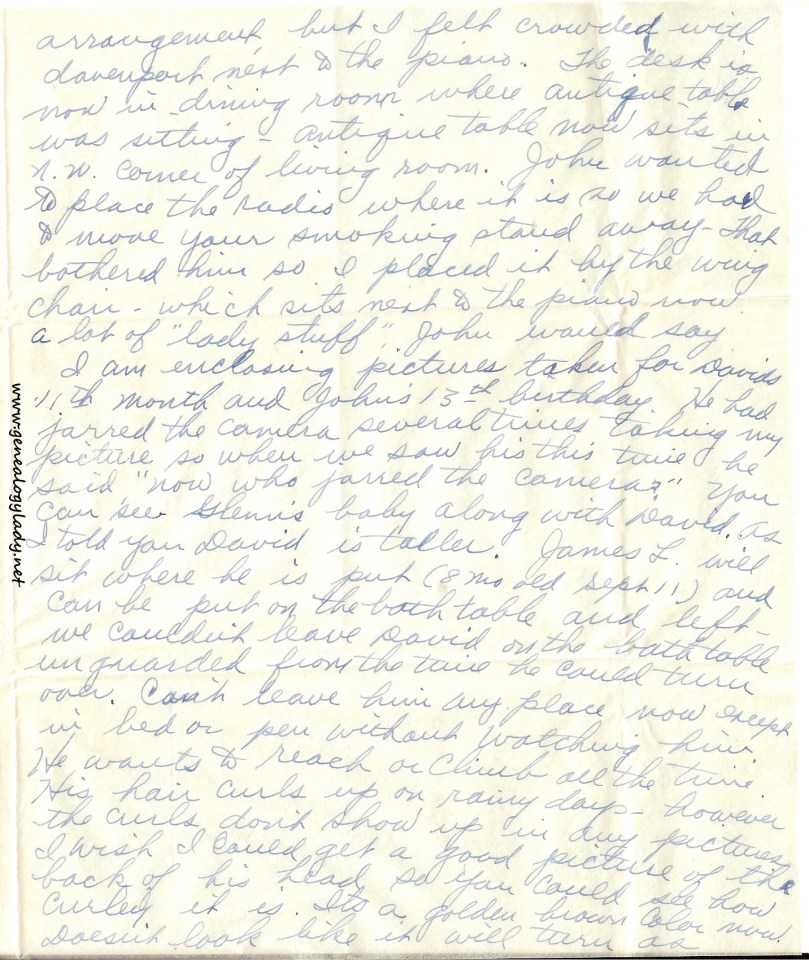 arrangement but I felt crowded with
davenport next to the piano. The desk is
now in dining room where antique table
was sitting - antique table now sits in
n.w. corner of living room. John wanted
to place the radio where it is so we had
to move your smoking stand away - That
bothered him so I placed it by the wing
chair - which sits next to the piano now
a lot of "lady stuff", John would say
I am enclosing pictures taken for Davids
11th month and John's 13th birthday. He had
jarred the camera several times taking my
picture so when we saw his this time he
said "now who jarred the camera?" You
can see Glenn's baby along with David. As
I told you David is taller. James L. will
sit where he is put (8 mo old Sept 11) and
can be put on the bath table and left -
we couldn't leave David on the bath table
unguarded from the time he could turn
over. Can't leave him any place now except
in bed or pen without watching him
He wants to reach or climb all the time.
His hair curls up on rainy days - however
the curls don't show up in any pictures
I wish I could get a good picture of the
back of his head so you could see how
curley it is. Its a golden brown color now.
Doesn't look like it will turn as
www.genealogylady.net